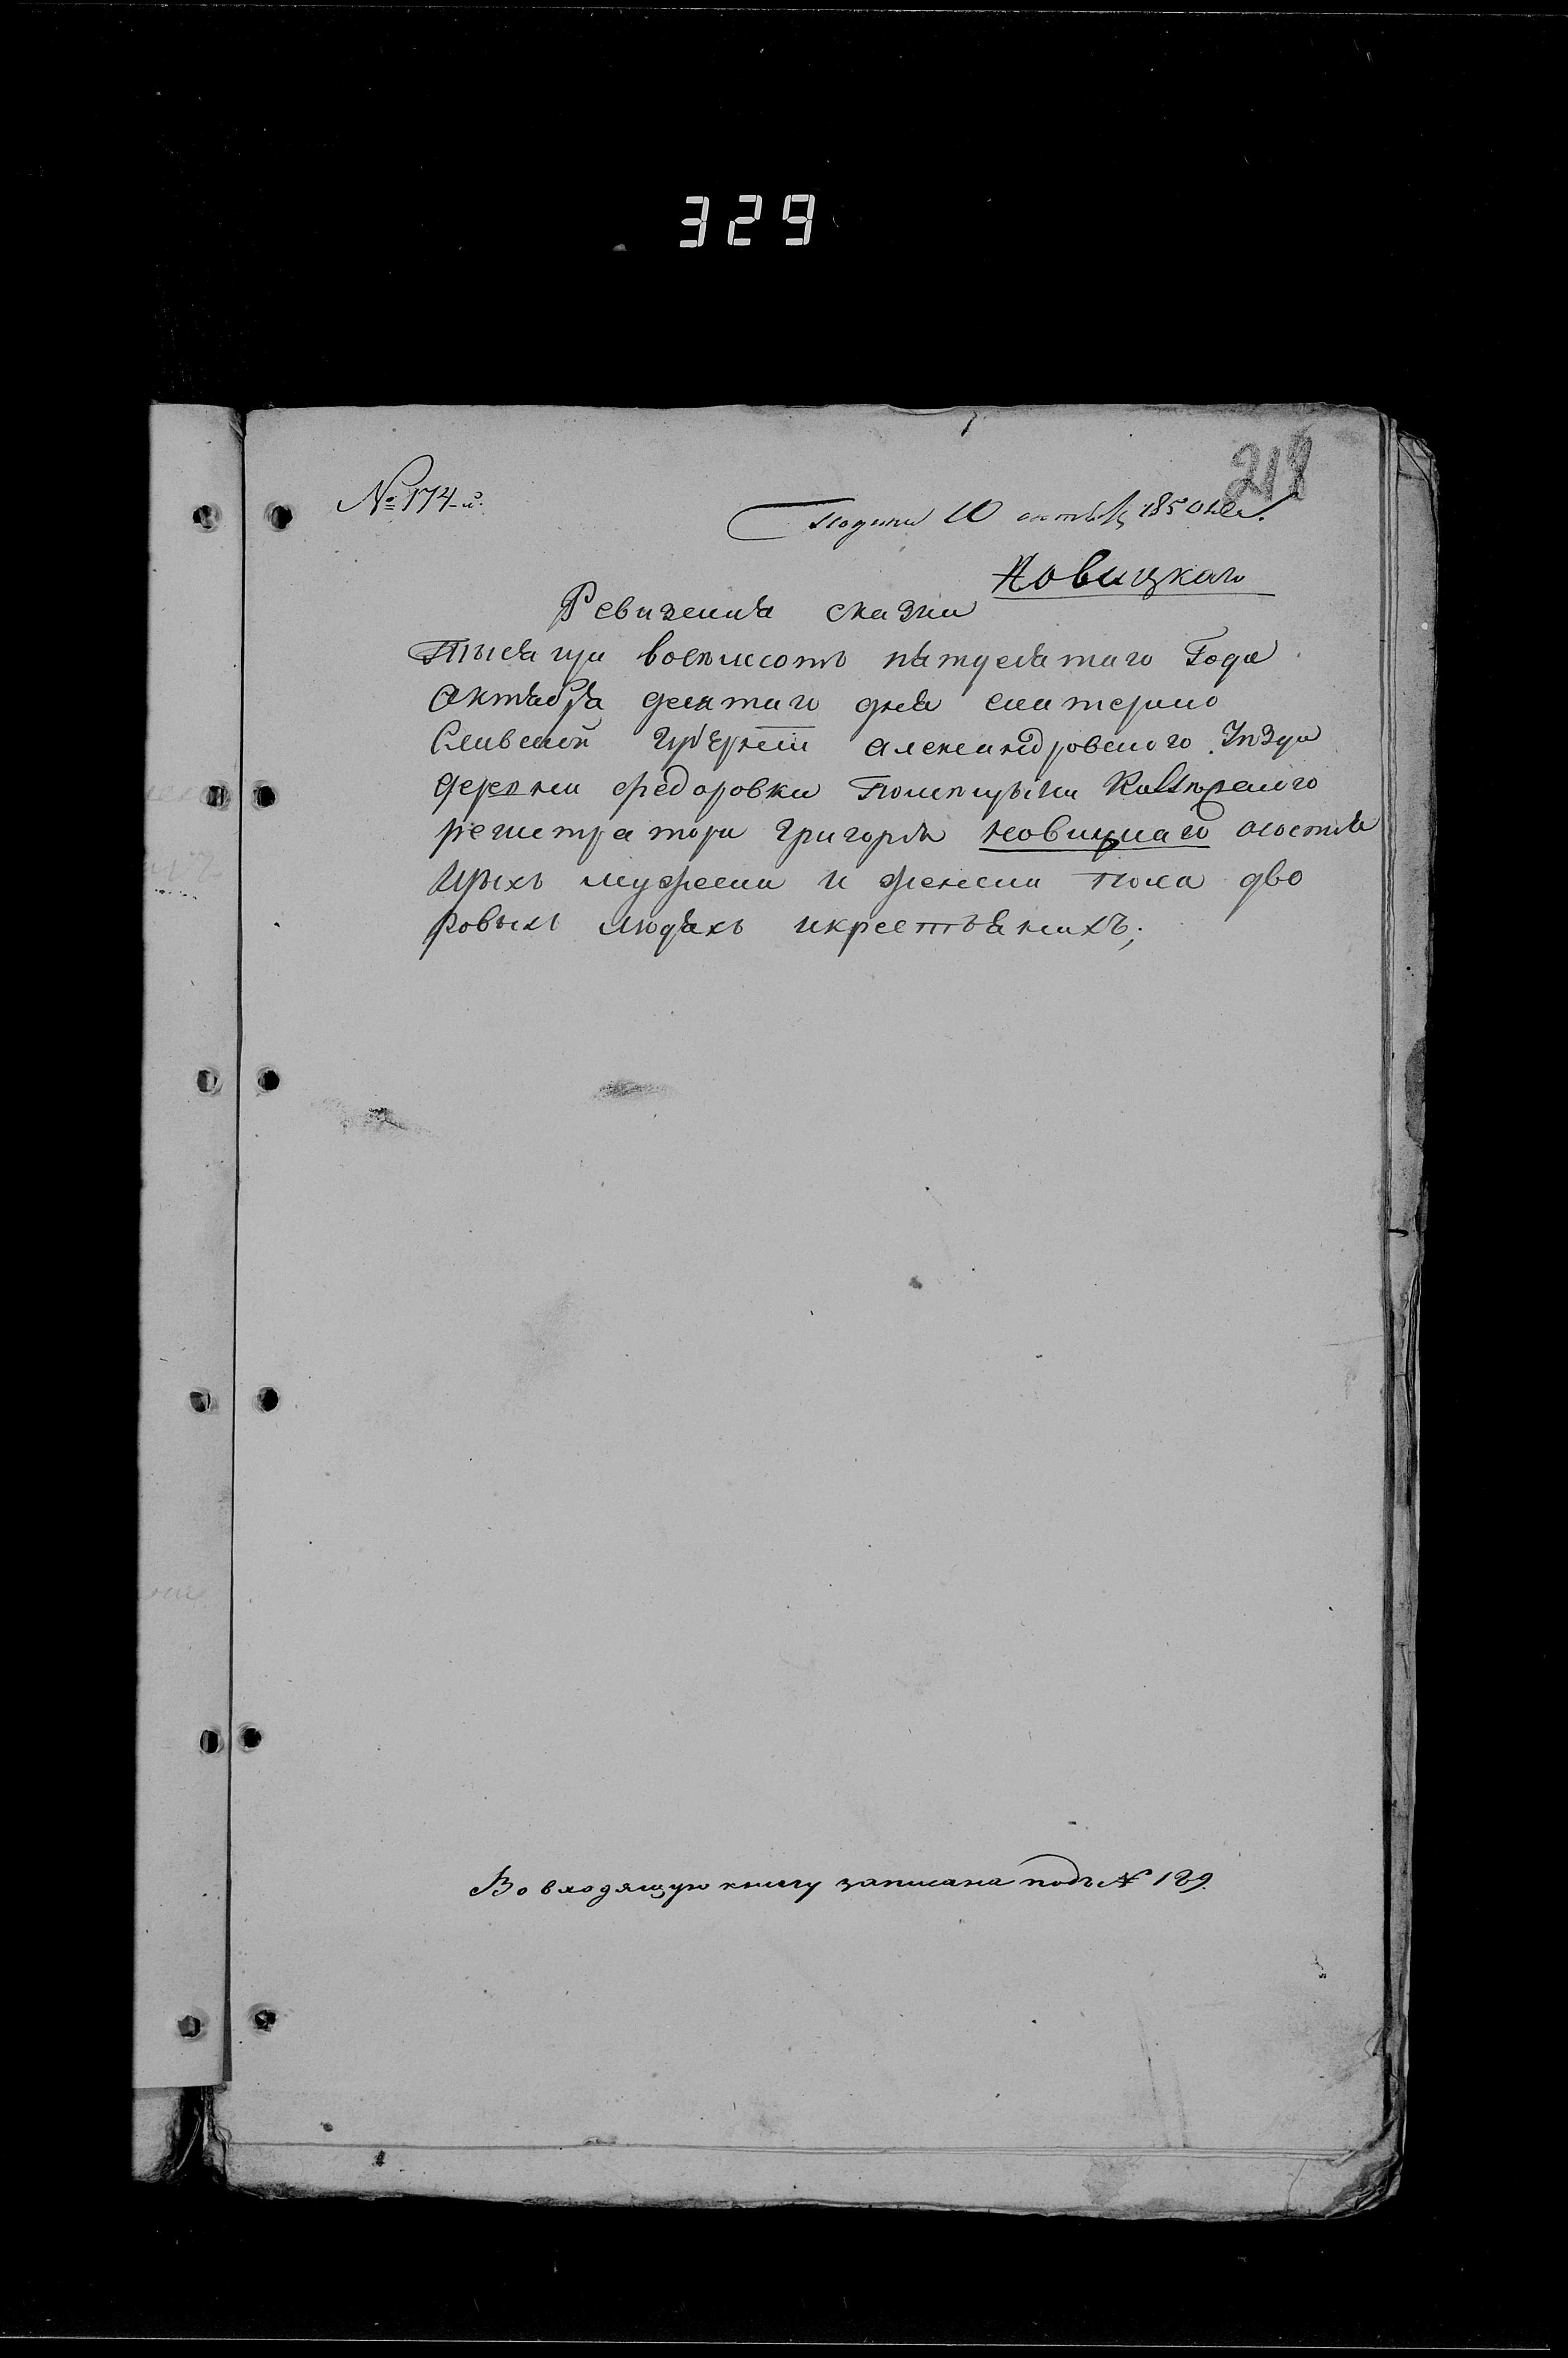 329
218
№ 174-й.
Подана 10 октября 1850 года.
Новицкаго
Ревизския сказки
Тысяча восьмсотъ пятдесятаго Года
Октября десятаго дня екатерино
Славской Губернии александровского Уезда
деревни федоровки Помещыка Коллежского
регистратора Григория Новицкаго осостоя
щыхъ мужеска и женска пола дво
ровыхъ людяхъ икрестьянахъ;
Во входящую книгу записана подъ № 189.